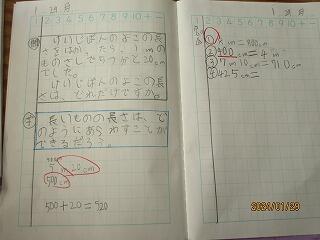 1 29 月
1 2 3 4 5 6 7 8 9 10 + －
問 けいじばんのよこの長
さをはかったら、1mの
ものさしで5つ分と20cm
でした。
けいじばんのよこの長
さは、どれだけですか。
長いものの長さは、ど
のようにあらわすことが
できるだろう。
5m20cm
500cm
500+20=520
1 29 月
1 2 3 4 5 6 7 8 9 10 + －
① 8m=800cm
② 400cm=4m
③ 7m10cm=710cm
④ 425cm=
2024/01/29